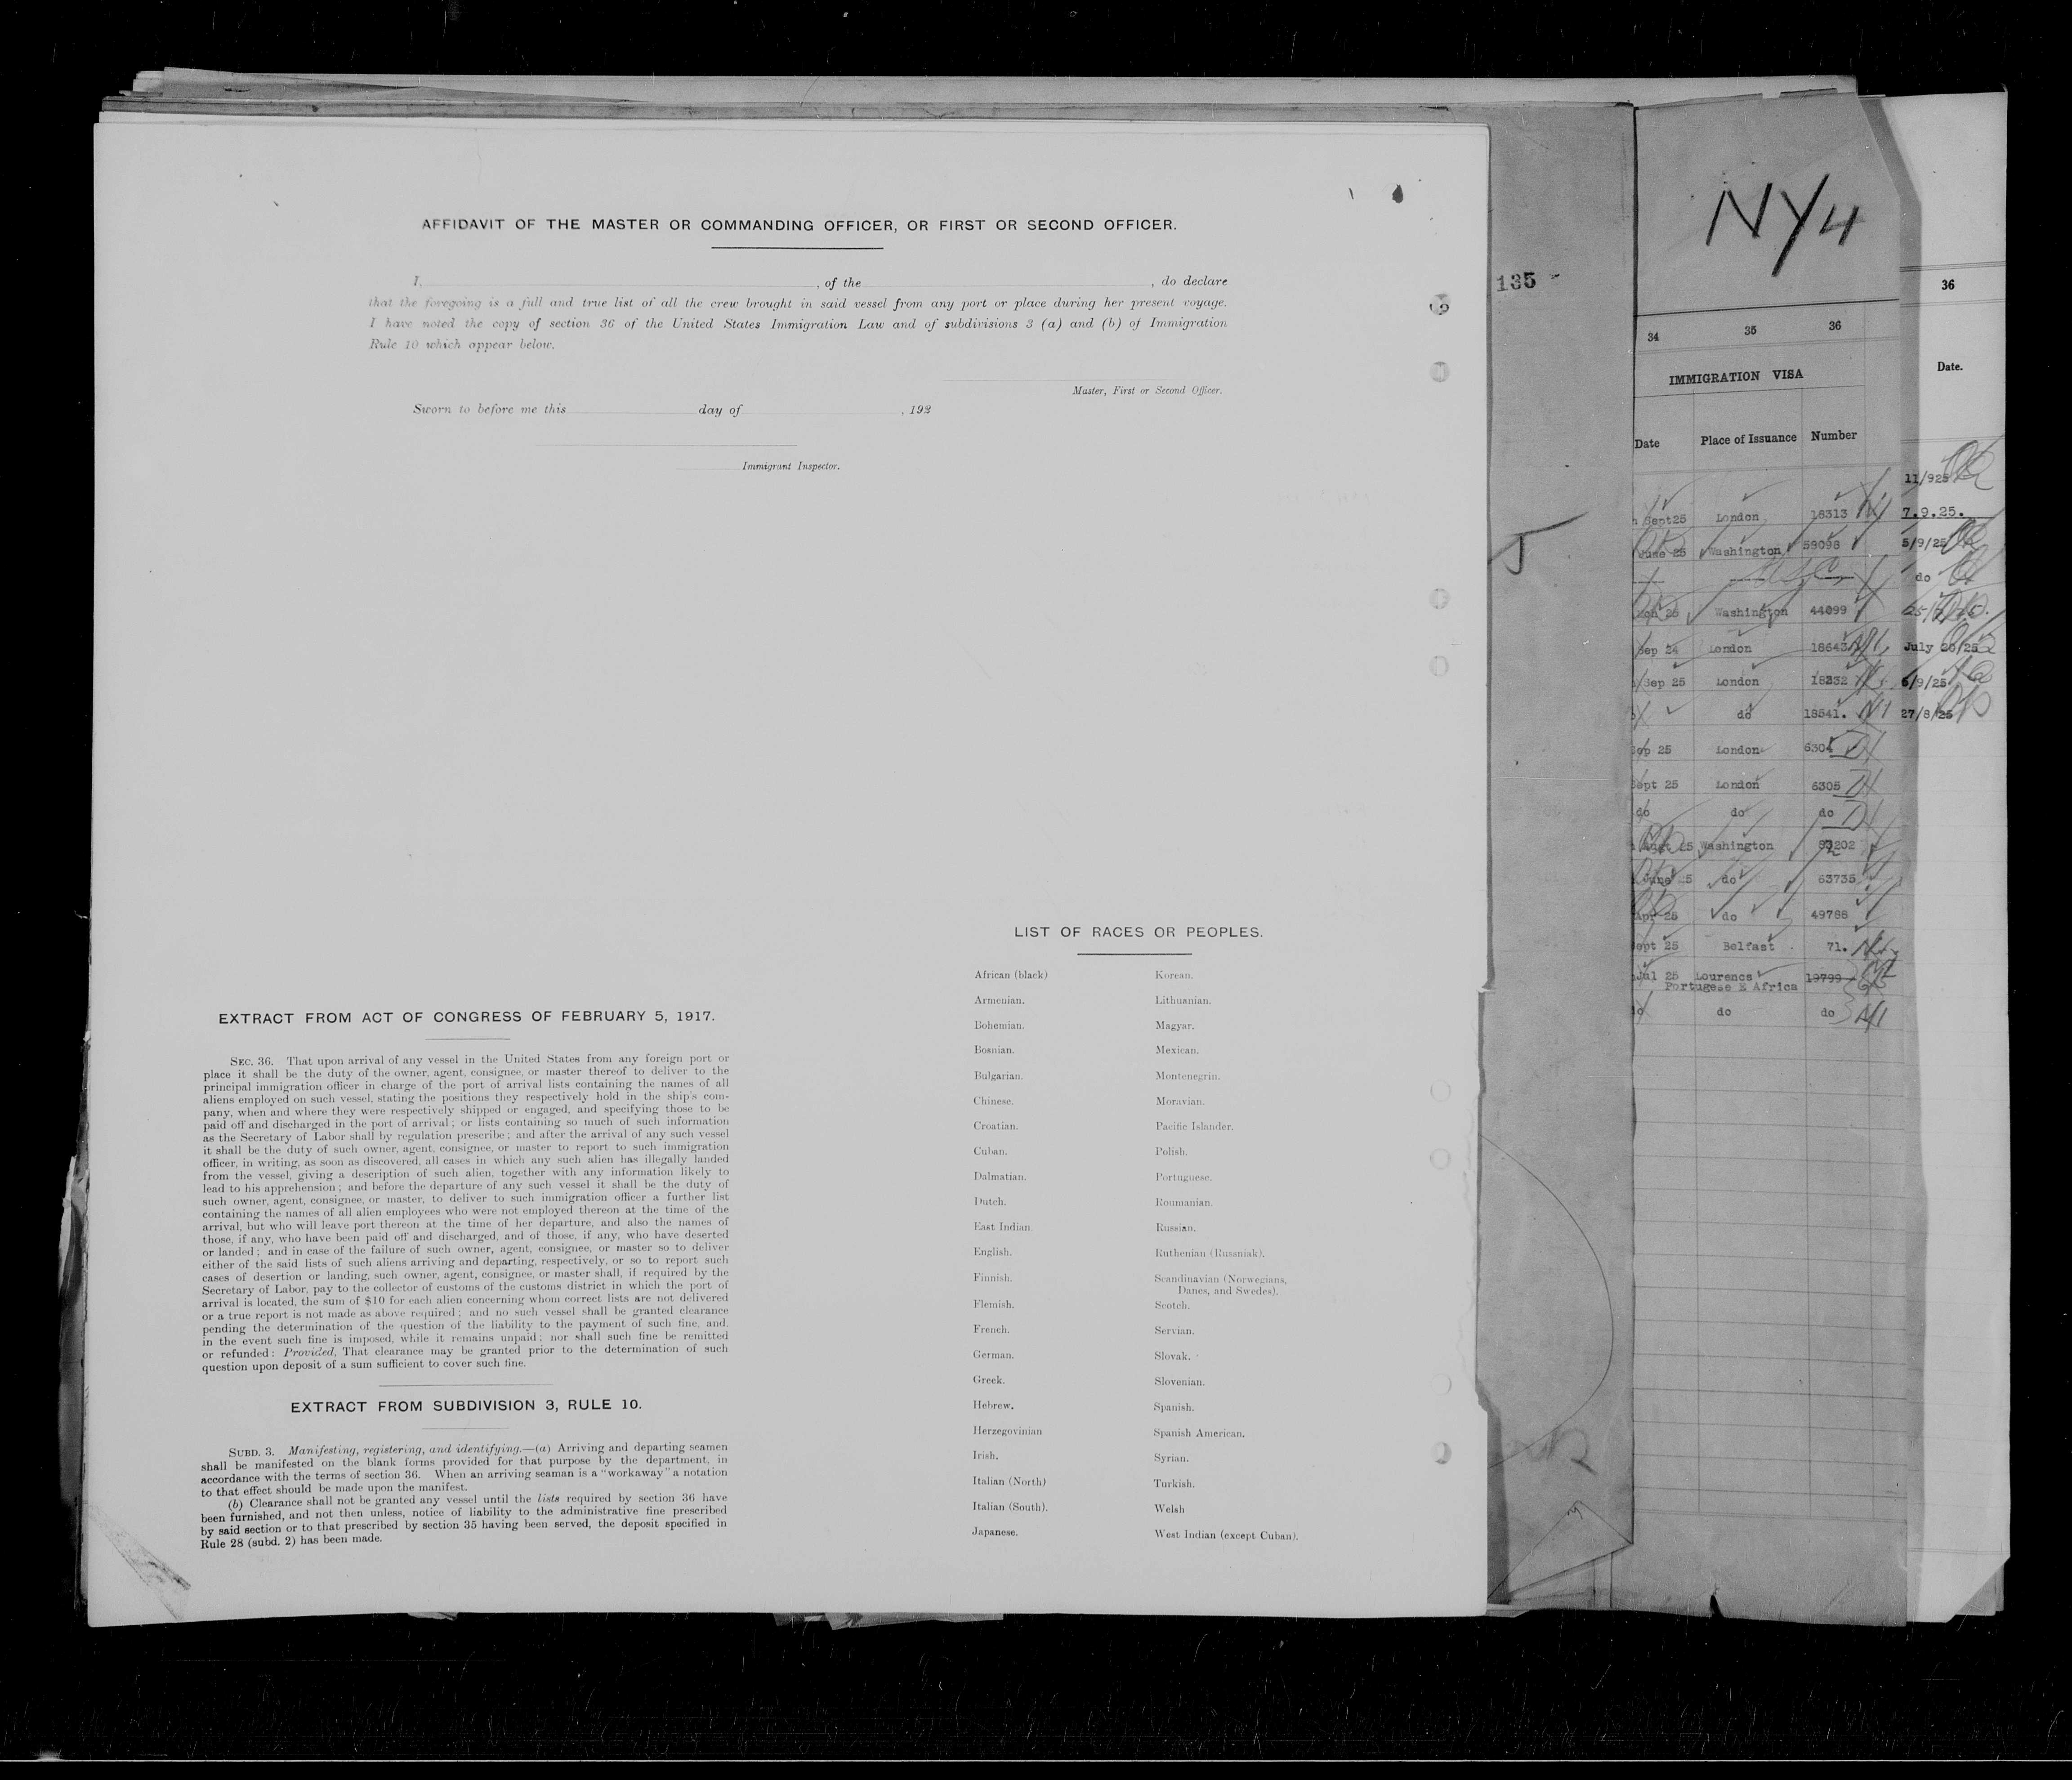 AFFIDAVIT OF THE MASTER OR COMMANDING OFFICER, OR FIRST OR SECOND OFFICER.
I, , of the , do declare
that the foregoing is a full and true list of all the crew brought in said vessel from any port or place during her present voyage.
I have noted the copy of section 36 of the United States Immigration Law and of subdivisions 3 (a) and (b) of Immigration
Rule 10 which appear below.
Master, First or Second Officer.
Sworn to before me this day of , 192
Immigrant Inspector.
EXTRACT FROM ACT OF CONGRESS OF FEBRUARY 5, 1917.
SEC. 36. That upon arrival of any vessel in the United States from any foreign port or
place it shall be the duty of the owner, agent, consignee, or master thereof to deliver to the
principal immigration officer in charge of the port of arrival lists containing the names of all
aliens employed on such vessel, stating the positions they respectively hold in the ship's com-
pany, when and where they were respectively shipped or engaged, and specifying those to be
paid off and discharged in the port of arrival; or lists containing so much of such information
as the Secretary of Labor shall by regulation prescribe; and after the arrival of any such vessel
it shall be the duty of such owner, agent, consignee, or master to report to such immigration
officer, in writing, as soon as discovered, all cases in which any such alien has illegally landed
from the vessel, giving a description of such alien, together with any information likely to
lead to his apprehension; and before the departure of any such vessel it shall be the duty of
such owner, agent, consignee, or master, to deliver to such immigration officer a further list
containing the names of all alien employees who were not employed thereon at the time of the
arrival, but who will leave port thereon at the time of her departure, and also the names of
those, if any, who have been paid off and discharged, and of those, if any, who have deserted
or landed; and in case of the failure of such owner, agent, consignee, or master so to deliver
either of the said lists of such aliens arriving and departing, respectively, or so to report such
cases of desertion or landing, such owner, agent, consignee, or master shall, if required by the
Secretary of Labor, pay to the collector of customs of the customs district in which the port of
arrival is located, the sum of $10 for each alien concerning whom correct lists are not delivered
or a true report is not made as above required; and no such vessel shall be granted clearance
pending the determination of the question of the liability to the payment of such fine, and,
in the event such fine is imposed, while it remains unpaid; nor shall such fine be remitted
or refunded: Provided, That clearance may be granted prior to the determination of such
question upon deposit of a sum sufficient to cover such fine.
EXTRACT FROM SUBDIVISION 3, RULE 10.
SUBD. 3. Manifesting, registering, and identifying.—(a) Arriving and departing seamen
shall be manifested on the blank forms provided for that purpose by the department, in
accordance with the terms of section 36. When an arriving seaman is a "workaway" a notation
to that effect should be made upon the manifest.
(b) Clearance shall not be granted any vessel until the lists required by section 36 have
been furnished, and not then unless, notice of liability to the administrative fine prescribed
by said section or to that prescribed by section 35 having been served, the deposit specified in
Rule 28 (subd. 2) has been made.
LIST OF RACES OR PEOPLES.
African (black)
Armenian.
Bohemian.
Bosnian.
Bulgarian.
Chinese.
Croatian.
Cuban.
Dalmatian.
Dutch.
East Indian.
English.
Finnish.
Flemish.
French.
German.
Greek.
Hebrew.
Herzegovinian
Irish.
Italian (North)
Italian (South).
Japanese.
Korean.
Lithuanian.
Magyar.
Mexican.
Montenegrin.
Moravian.
Pacific Islander.
Polish.
Portuguese.
Roumanian.
Russian.
Ruthenian (Russniak).
Scandinavian (Norwegians,
Danes, and Swedes).
Scotch.
Servian.
Slovak.
Slovenian.
Spanish.
Spanish American.
Syrian.
Turkish.
Welsh
West Indian (except Cuban).
135
NY4
34 35 36
IMMIGRATION VISA
Date Place of Issuance Number
Sept25 London 18313
June 25 Washington 59098
Washington 44099
Sep 24 London 18643
Sep 25 London 18232
do 18541.
Sep 25 London 6304
Sept 25 London 6305
do do do
25 Washington 202
June 25 do 63735
Apr 25 do 49788
Sept 25 Belfast 71.
Jul 25 Lourencs 19799
Portugese E Africa
do do
36
Date.
11/925
7.9.25.
5/9/25
do
July 20/25
5/9/25
27/8/25